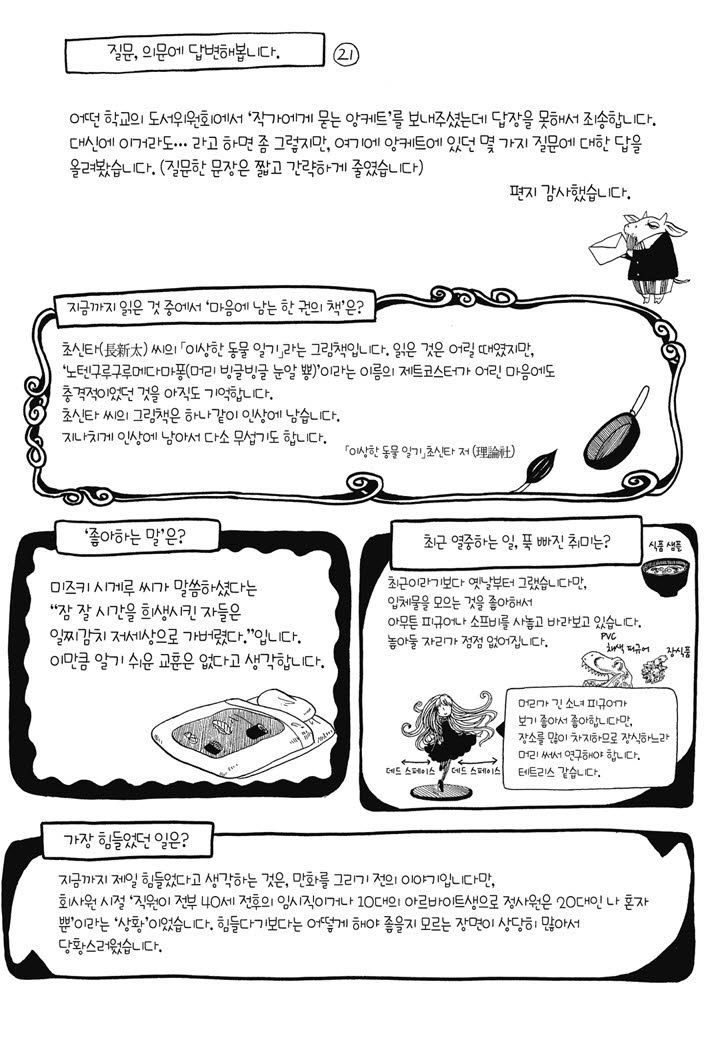 질문, 의문에 답변해봅니다.
21
어떤 학교의 도서위원회에서 '작가에게 묻는 앙케트'를 보내주셨는데 답장을 못해서 죄송합니다.
대신에 이거라도… 라고 하면 좀 그렇지만, 여기에 앙케트에 있던 몇 가지 질문에 대한 답을
올려봤습니다. (질문한 문장은 짧고 간략하게 줄였습니다)
편지 감사했습니다.
지금까지 읽은 것 중에서 '마음에 남는 한 권의 책'은?
초신타(長新太) 씨의 「이상한 동물 일기」라는 그림책입니다. 읽은 것은 어릴 때였지만,
'노텐구루구루메다마퐁(머리 빙글빙글 눈알 뿅)'이라는 이름의 제트코스터가 어린 마음에도
충격적이었던 것을 아직도 기억합니다.
초신타 씨의 그림책은 하나같이 인상에 남습니다.
지나치게 인상에 남아서 다소 무섭기도 합니다.
「이상한 동물 일기」초신타 저 (理論社)
'좋아하는 말'은?
미즈키 시게루 씨가 말씀하셨다는
"잠 잘 시간을 희생시킨 자들은
일찌감치 저세상으로 가버렸다."입니다.
이만큼 알기 쉬운 교훈은 없다고 생각합니다.
최근 열중하는 일, 푹 빠진 취미는?
식품 샘플
최근이라기보다 옛날부터 그랬습니다만,
입체물을 모으는 것을 좋아해서
아무튼 피규어나 소프비를 사놓고 바라보고 있습니다.
놓아둘 자리가 점점 없어집니다.
PVC
채색 피규어
장식품
머리가 긴 소녀 피규어가
보기 좋아서 좋아합니다만,
장소를 많이 차지하므로 장식하느라
머리 써서 연구해야 합니다.
테트리스 같습니다.
데드 스페이스
데드 스페이스
가장 힘들었던 일은?
지금까지 제일 힘들었다고 생각하는 것은, 만화를 그리기 전의 이야기입니다만,
회사원 시절 '직원이 전부 40세 전후의 임시직이거나 10대의 아르바이트생으로 정사원은 20대인 나 혼자
뿐'이라는 '상황'이었습니다. 힘들다기보다는 어떻게 해야 좋을지 모르는 장면이 상당히 많아서
당황스러웠습니다.